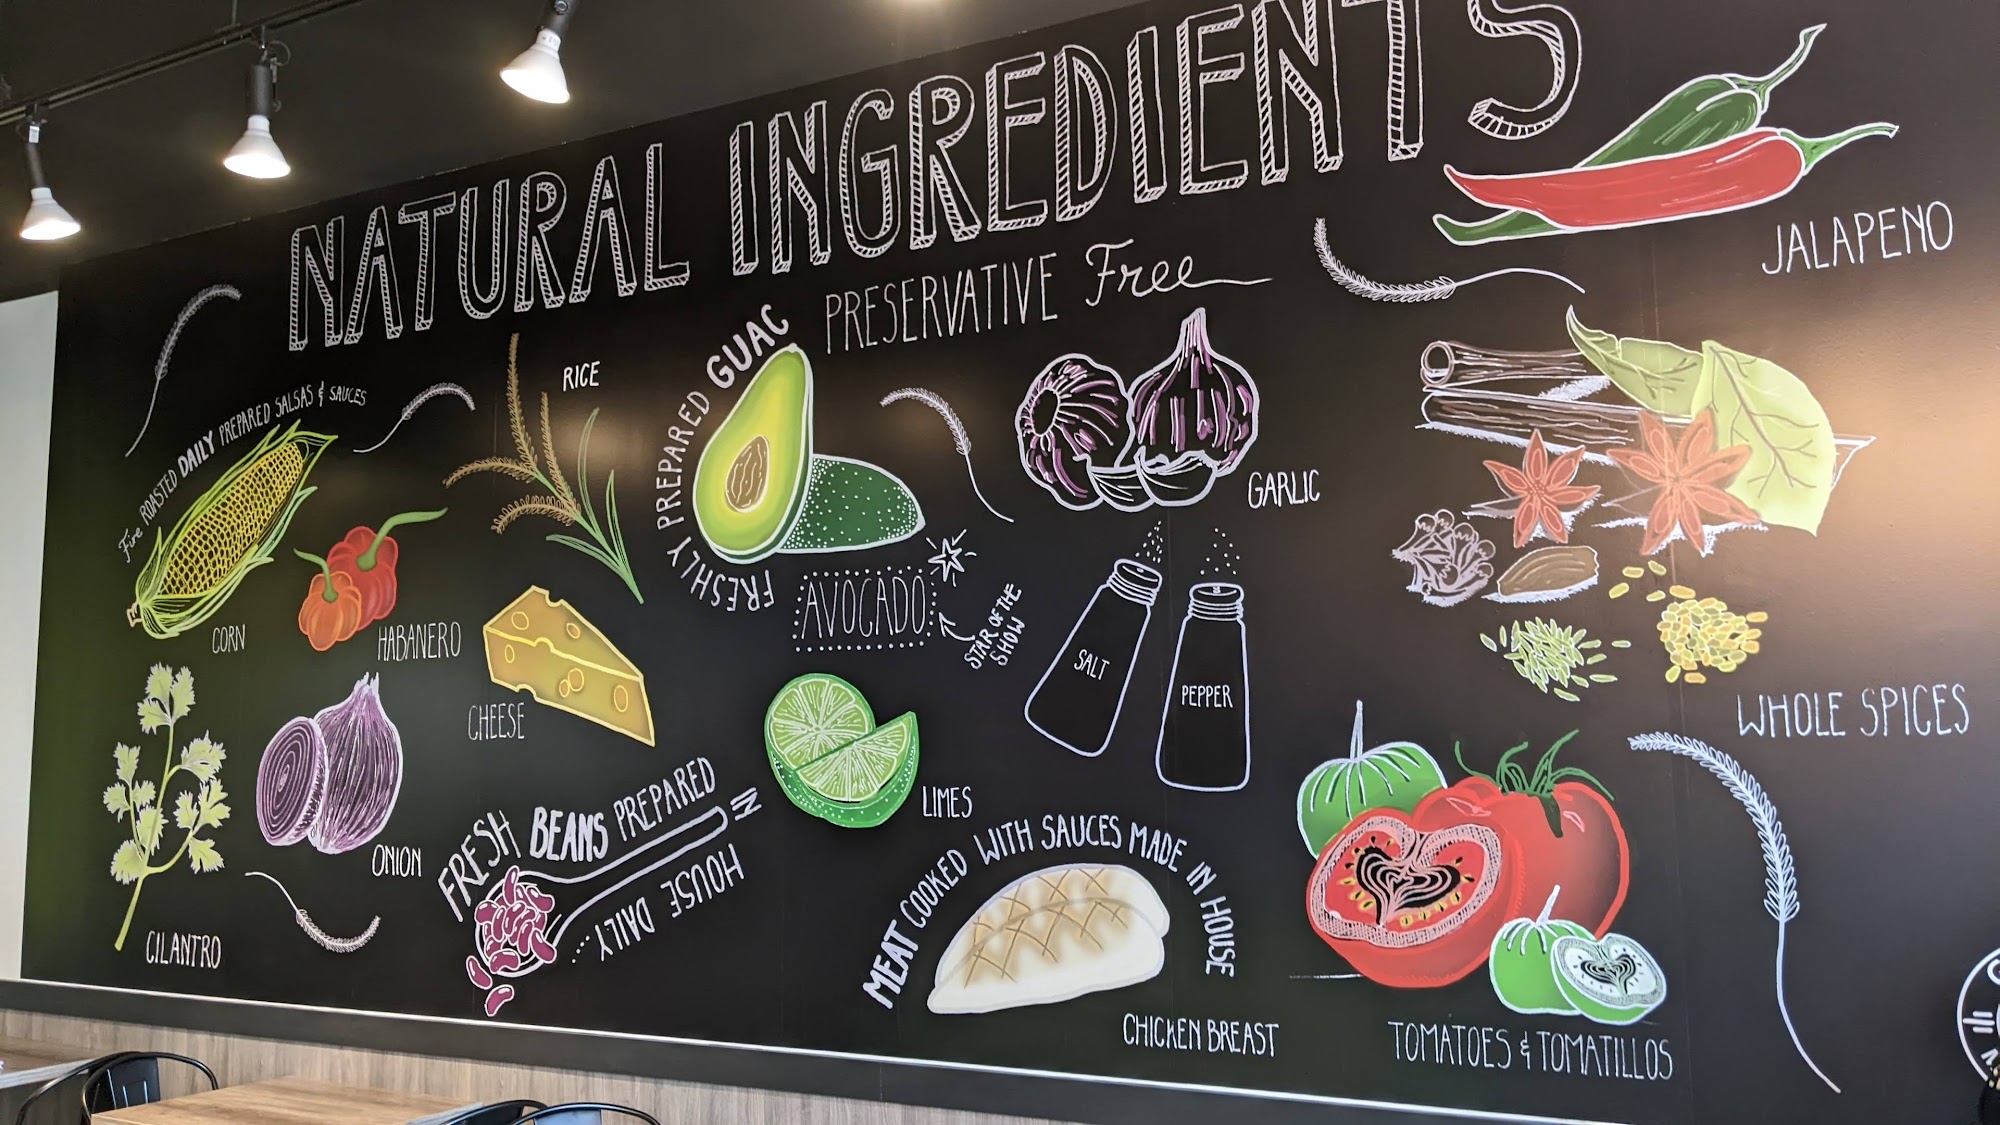 NATURAL INGREDIENTS
PRESERVATIVE Free
JALAPENO
Fire ROASTED DAILY PREPARED SALSAS & SAUCES
CORN
RICE
HABANERO
FRESHLY PREPARED GUAC
FRESHLY
AVOCADO
STAR OF THE
SHOW
GARLIC
SALT
PEPPER
WHOLE SPICES
CHEESE
CILANTRO
ONION
FRESH BEANS PREPARED IN
HOUSE DAILY...
LIMES
MEAT COOKED WITH SAUCES MADE IN HOUSE
CHICKEN BREAST
TOMATOES & TOMATILLOS